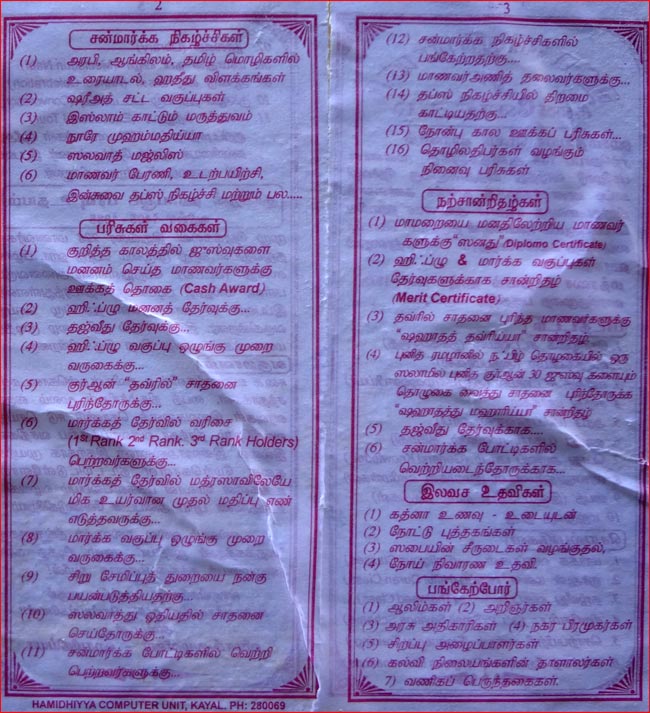 2
சன்மார்க்க நிகழ்ச்சிகள்
(1) அரபி, ஆங்கிலம், தமிழ் மொழிகளில்
உரையாடல், ஹதீது விளக்கங்கள்
(2) ஷரீஅத் சட்ட வகுப்புகள்
(3) இஸ்லாம் காட்டும் மருத்துவம்
(4) நூரே முஹம்மதிய்யா
(5) ஸலவாத் மஜ்லிஸ்
(6) மாணவர் பேரணி, உடற்பயிற்சி,
இன்சுவை தப்ஸ் நிகழ்ச்சி மற்றும் பல.....
பரிசுகள் வகைகள்
(1) குறித்த காலத்தில் ஜுஸ்வுகளை
மனனம் செய்த மாணவர்களுக்கு
ஊக்கத் தொகை (Cash Award)
(2) ஹிஃப்ழு மனனத் தேர்வுக்கு...
(3) தஜ்வீது தேர்வுக்கு...
(4) ஹிஃப்ழு வகுப்பு ஒழுங்கு முறை
வருகைக்கு...
(5) குர்ஆன் "தவ்ரில்" சாதனை
புரிந்தோருக்கு...
(6) மார்க்கத் தேர்வில் வரிசை
(1st Rank 2nd Rank. 3rd Rank Holders)
பெற்றவர்களுக்கு...
(7) மார்க்கத் தேர்வில் மத்ரஸாவிலேயே
மிக உயர்வான முதல் மதிப்பு எண்
எடுத்தவருக்கு...
(8) மார்க்க வகுப்பு ஒழுங்கு முறை
வருகைக்கு...
(9) சிறு சேமிப்புத் துறையை நன்கு
பயன்படுத்தியதற்கு...
(10) ஸலவாத்து ஓதியதில் சாதனை
செய்தோருக்கு...
(11) சன்மார்க்க போட்டிகளில் வெற்றி
பெற்றவர்களுக்கு...
HAMIDHIYYA COMPUTER UNIT, KAYAL. PH: 280069
3
(12) சன்மார்க்க நிகழ்ச்சிகளில்
பங்கேற்றதற்கு...
(13) மாணவர்அணித் தலைவர்களுக்கு...
(14) தப்ஸ் நிகழ்ச்சியில் திறமை
காட்டியதற்கு...
(15) நோன்பு கால ஊக்கப் பரிசுகள்...
(16) தொழிலதிபர்கள் வழங்கும்
நினைவு பரிசுகள்
நற்சான்றிதழ்கள்
(1) மாமறையை மனதிலேற்றிய மாணவர்
களுக்கு "ஸனது" (Diplomo Certificate)
(2) ஹிஃப்ழு & மார்க்க வகுப்புகள்
தேர்வுகளுக்காக சான்றிதழ்
(Merit Certificate)
(3) தவ்ரில் சாதனை புரிந்த மாணவர்களுக்கு
"ஷஹாதத் தவ்ரிய்யா" சான்றிதழ்
(4) புனித ரமழானில் நஃபிழ் தொழுகையில் ஒரு
ஸலாமில் புனித குர்ஆன் 30 ஜுஸ்வு களையும்
தொழுகை வைத்து சாதனை புரிந்தோருக்கு
"ஷஹாதத்து மஹாரிய்யா" சான்றிதழ்
(5) தஜ்வீது தேர்வுக்காக....
(6) சன்மார்க்க போட்டிகளில்
வெற்றியடைந்தோருக்காக...
இலவச உதவிகள்
(1) கத்னா உணவு - உடையுடன்
(2) நோட்டு புத்தகங்கள்
(3) ஸபையின் சீருடைகள் வழங்குதல்,
(4) நோய் நிவாரண உதவி.
பங்கேற்போர்
(1) ஆலிம்கள் (2) அறிஞர்கள்
(3) அரசு அதிகாரிகள் (4) நகர பிரமுகர்கள்
(5) சிறப்பு அழைப்பாளர்கள்
(6) கல்வி நிலையங்களின் தாளாளர்கள்
7) வணிகப் பெருந்தகைகள்.